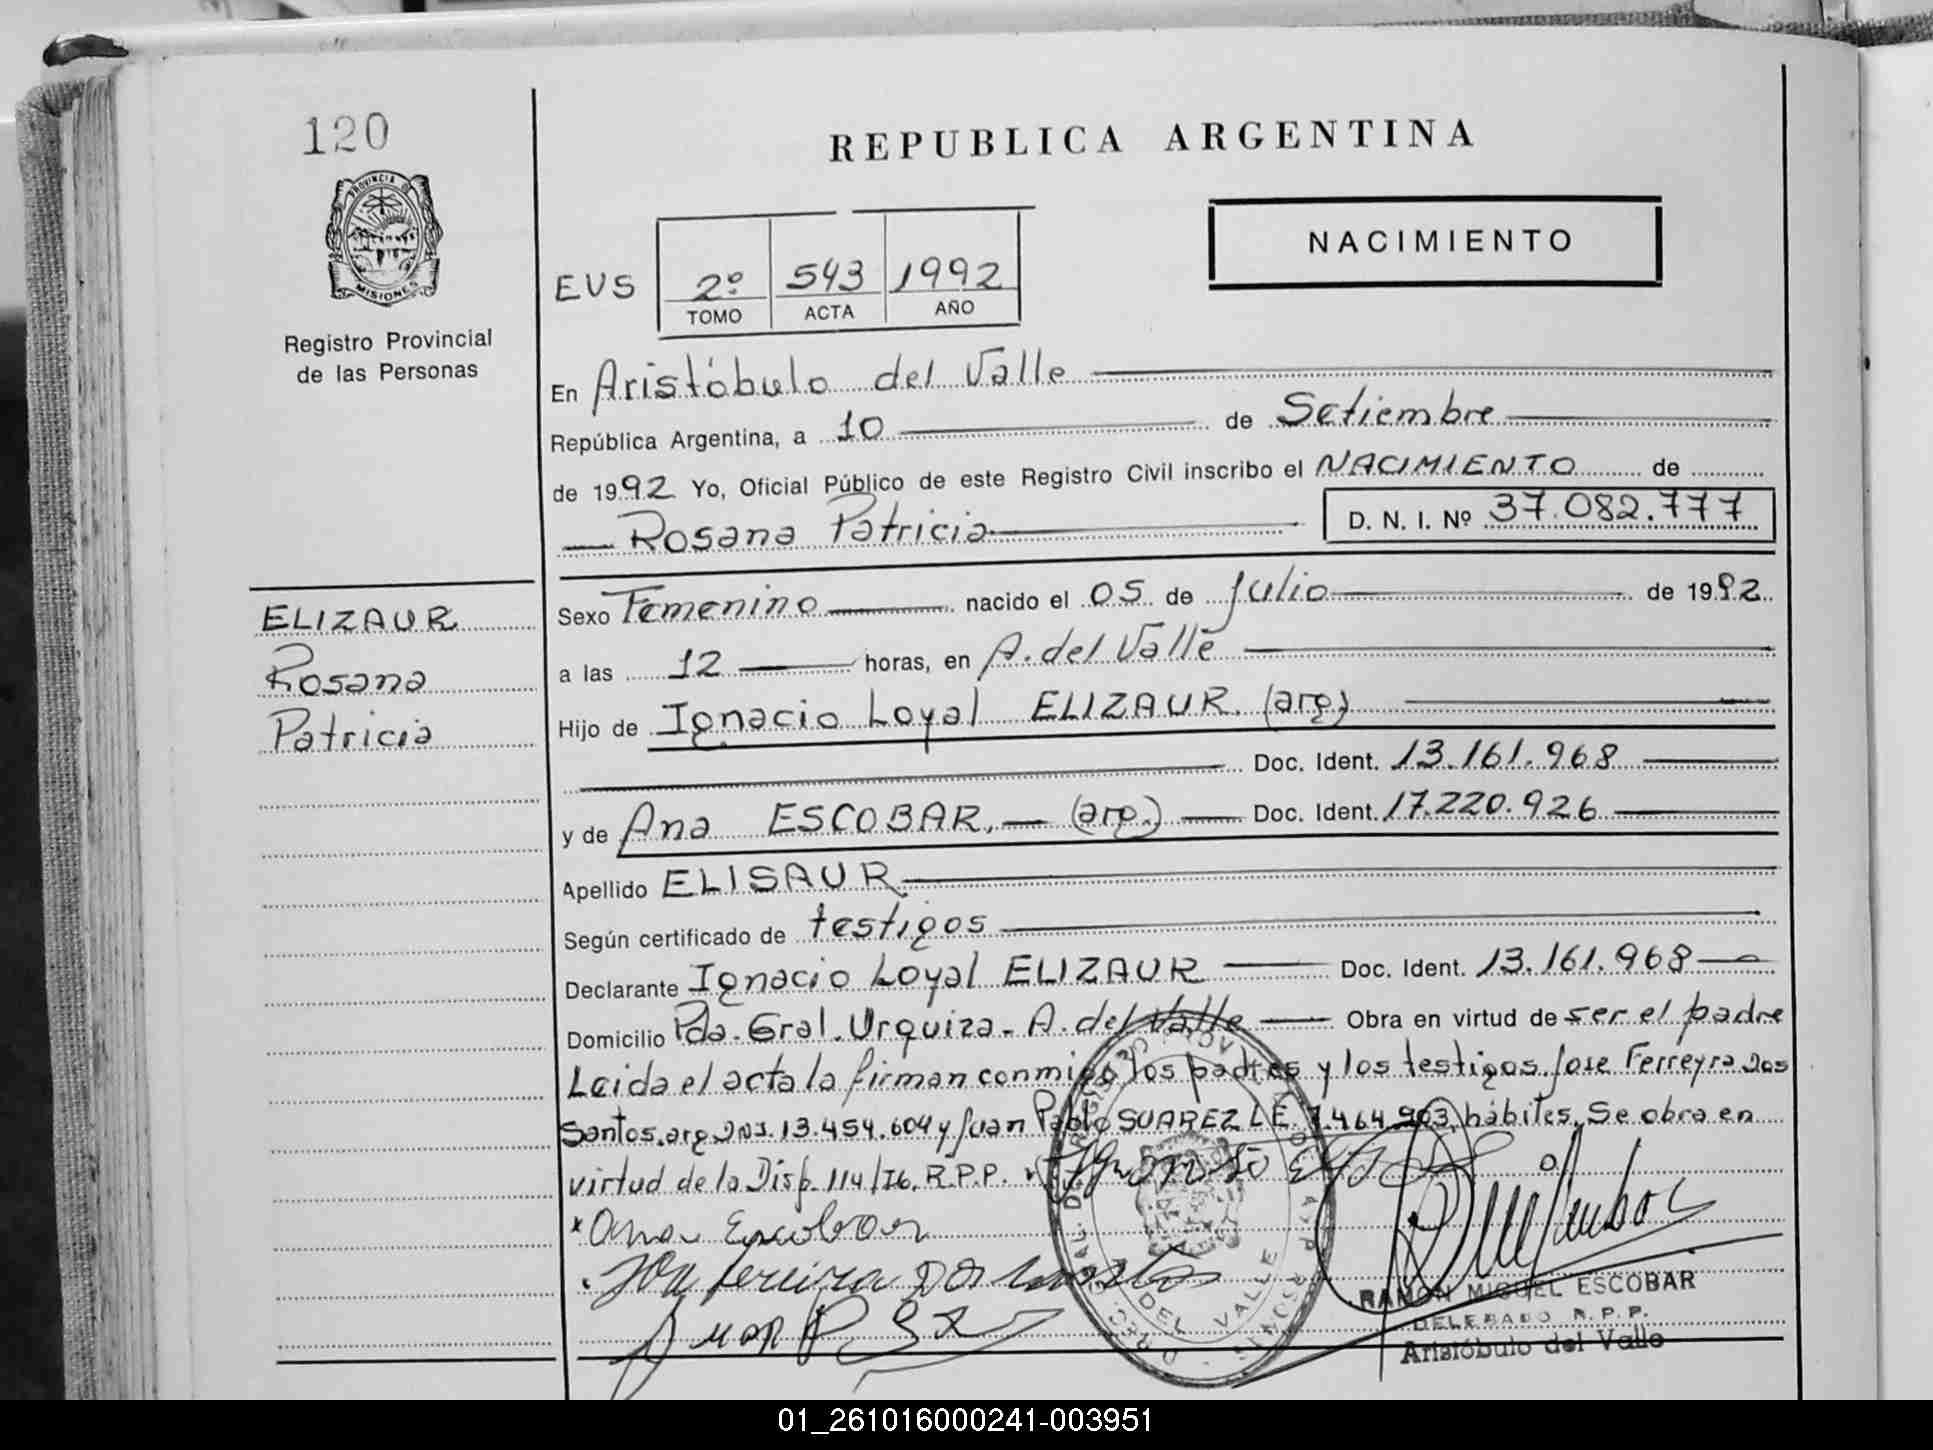 120
REPUBLICA ARGENTINA
PROVINCIA DE
MISIONES
Registro Provincial
de las Personas
NACIMIENTO
EUS 2º 543 1992
TOMO ACTA AÑO
En Aristóbulo del Valle
República Argentina, a 10 de Setiembre
de 1992 Yo, Oficial Público de este Registro Civil inscribo el NACIMIENTO de
Rosana Patricia D. N. I. Nº 37.082.777
ELIZAUR
Rosana
Patricia
Sexo Femenino nacido el 05 de Julio de 1992
a las 12 horas, en A. del Valle
Hijo de Ignacio Loyal ELIZAUR. (arg)
Doc. Ident. 13.161.968
y de Ana ESCOBAR. (arg.) Doc. Ident. 17.220.926
Apellido ELISAUR
Según certificado de testigos
Declarante Ignacio Loyal ELIZAUR Doc. Ident. 13.161.968
Domicilio Pda. Gral. Urquiza - A. del Valle Obra en virtud de ser el padre
Leida el acta la firman conmigo los padres y los testigos Jose Ferreyra Dos
Santos. arg DNI. 13.454.604 y Juan Pablo SUAREZ L.E. 7.464.903, hábiles. Se obra en
virtud de la Disp. 114/76. R.P.P.
Ana Escobar
RAMON MIGUEL ESCOBAR
DELEGADO R. P. P.
Aristóbulo del Valle
DEL VALLE
01_261016000241-003951